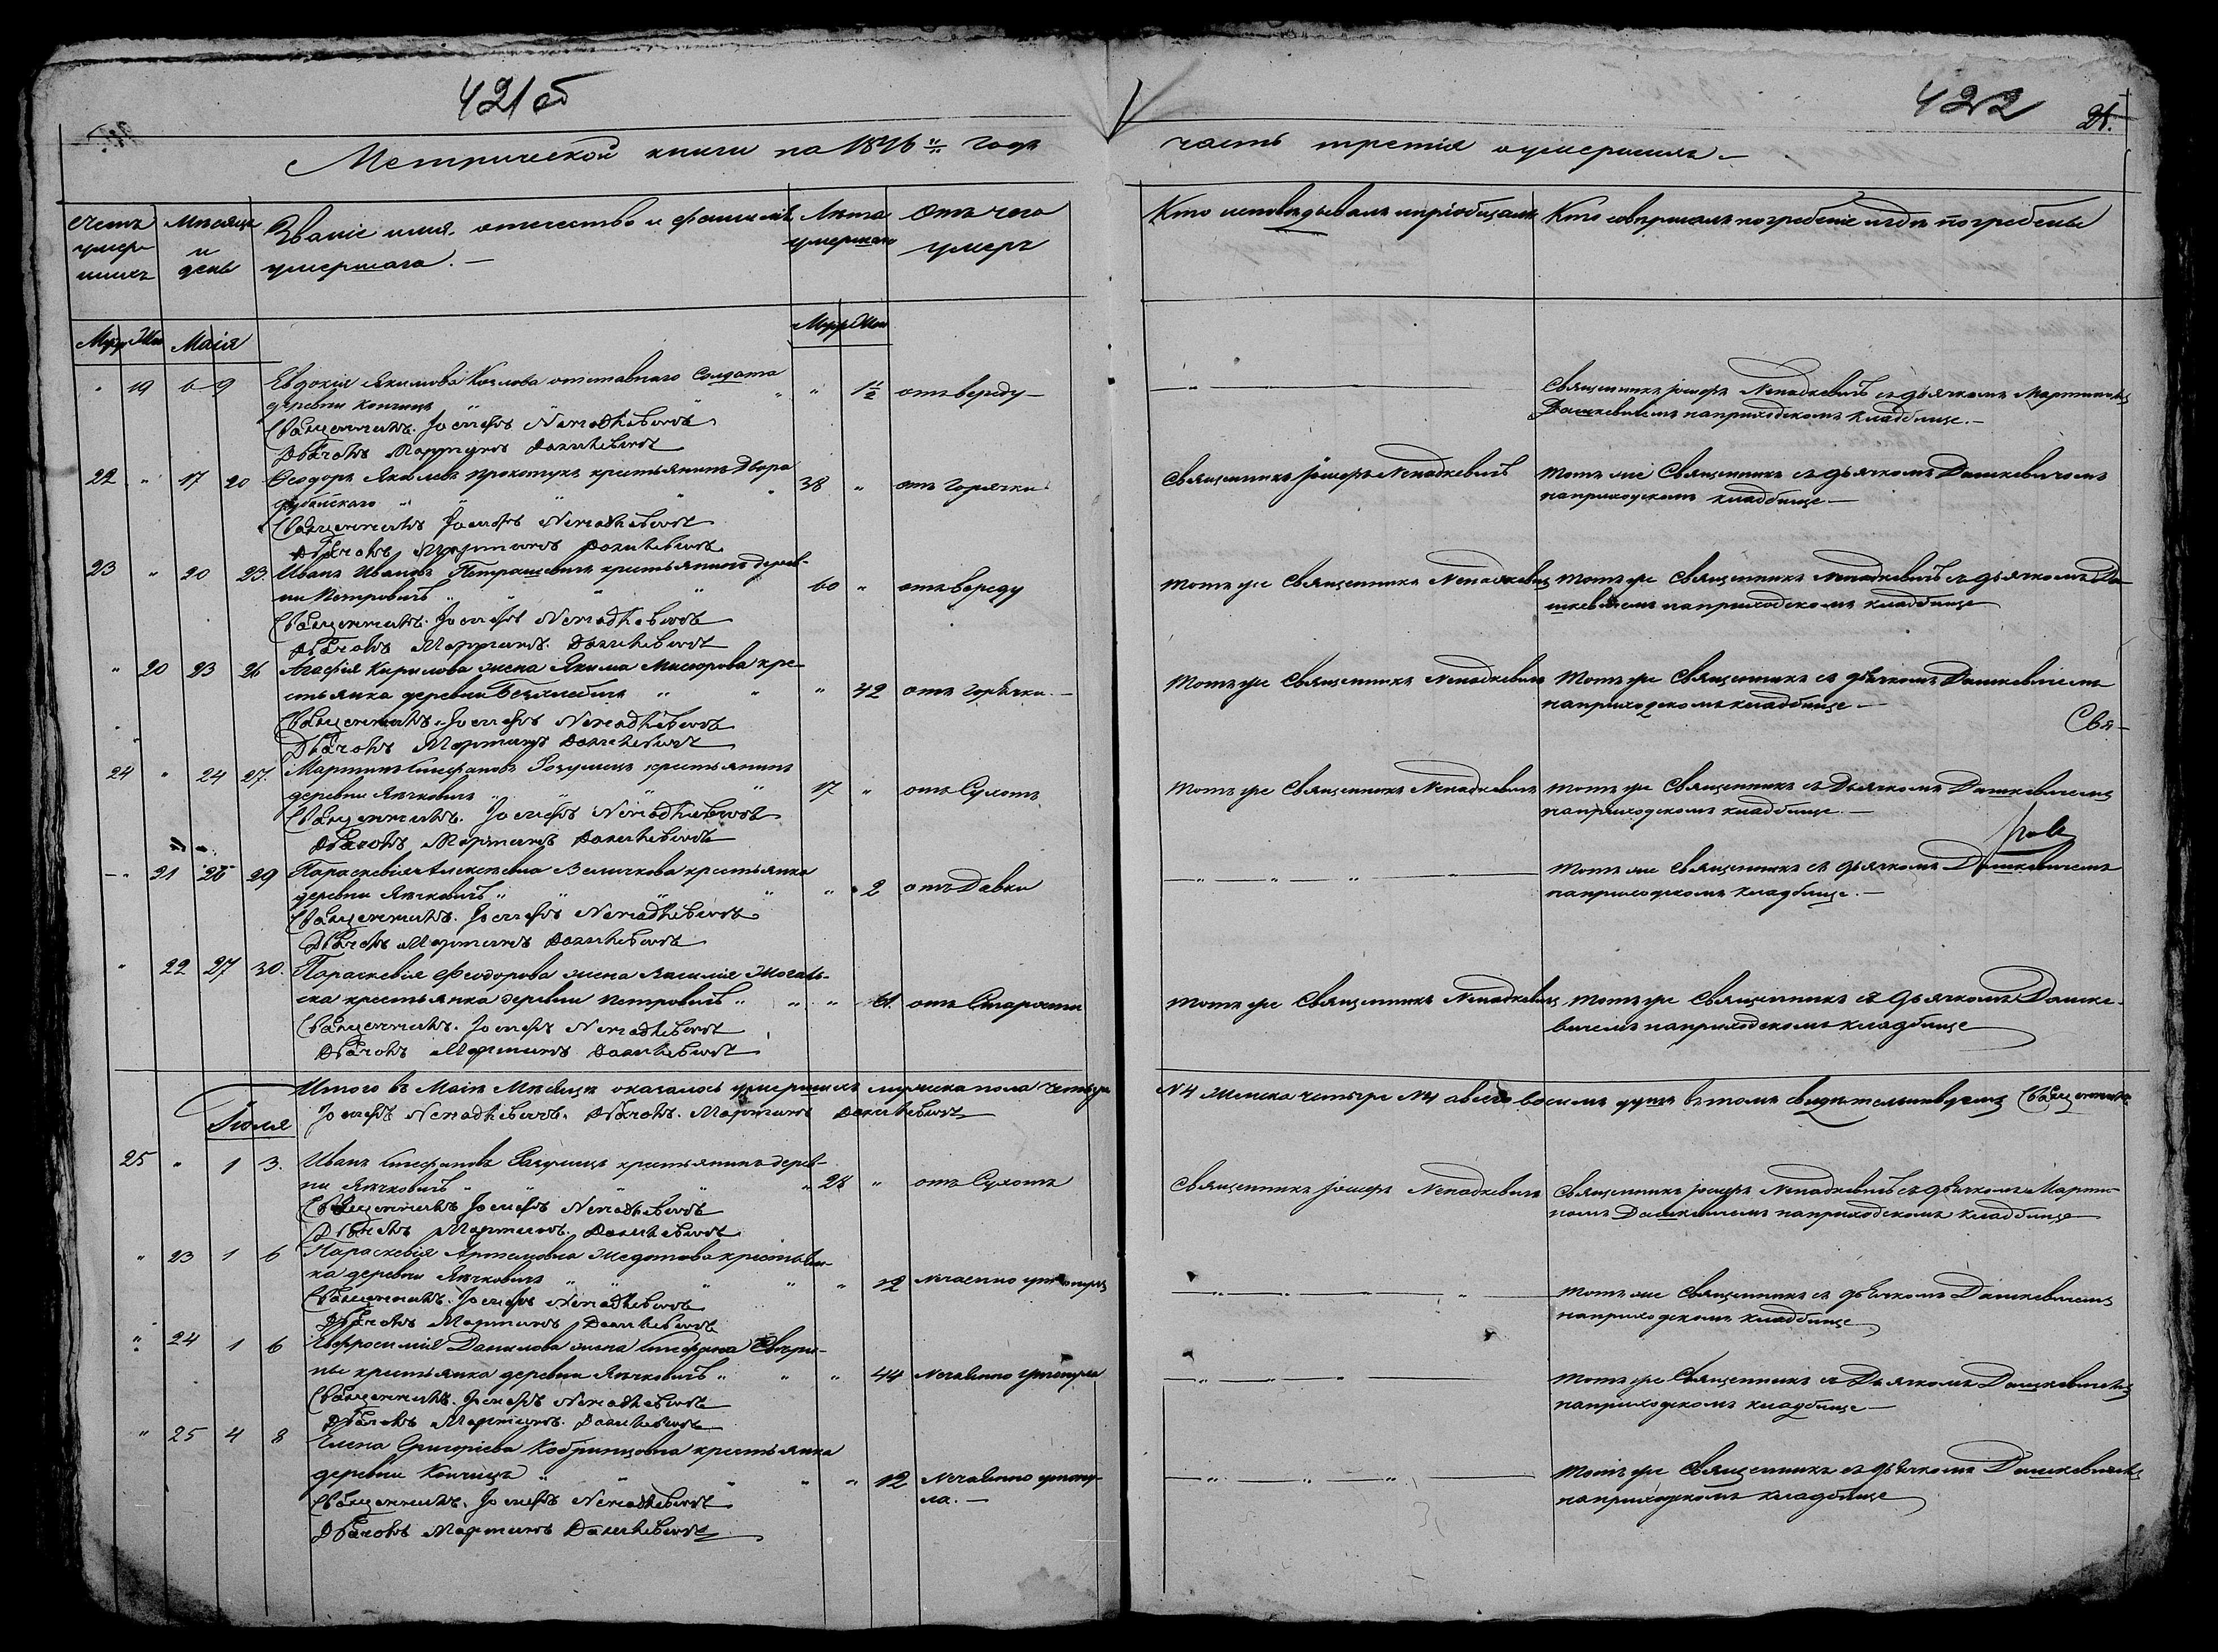 421 об
422
21.
Метрической книги на 1846й годъ
часть третія о умершихъ
Счетъ умер-
шихъ
Мѣсяцъ
и
день
Званіе имя, отчество и фамилія
умершаго. —
Лѣта
умершаго
Отъ чего
умеръ
Кто исповѣдывалъ и пріобщалъ
Кто совершалъ погребеніе и гдѣ погребены
Муж Жен Маія
Муж Жен
" 19 6 9 Евдокія Якимова Козлова отставнаго Солдата
деревни Кончицъ " " " " 1½ отъ вереду —
Священникъ Іосифъ Ненадкевичъ съ дьячкомъ Мартиномъ
Дашкевичемъ на приходскомъ кладбище. —
Священникъ. Іосифъ Ненадкевичъ
Дьячокъ Мартинъ Дашкевичъ
22 " 17 20 Феодоръ Яковлевъ Прокопчукъ крестьянинъ Двора
" " " 38 " отъ Горячки
Священникъ Іосифъ Ненадкевичъ
Тотъ же Священникъ съ дьячкомъ Дашкевичемъ
на приходскомъ кладбище —
Священникъ Іосифъ Ненадкевичъ
Дьячокъ Мартинъ Дашкевичъ
23 " 20 23. Иванъ Ивановъ Петрашевичъ крестьянинъ дерев-
ни Петровичъ " " " 60 " отъ вереду
Тотъ же Священникъ Ненадкевичъ
Тотъ же Священникъ Ненадкевичъ съ дьячкомъ Да-
шкевичемъ на приходскомъ кладбище
Священникъ. Іосифъ Ненадкевичъ
Дьячокъ Мартинъ. Дашкевичъ
" 20 23 26 Агафія Кирилова жена Якима Мисюрова кре-
стьянка деревни " " " 42 отъ Горячки. —
Тотъ же Священникъ Ненадкевичъ
Тотъ же Священникъ съ дьячкомъ Дашкевичемъ
на приходскомъ кладбище —
Свя-
Священникъ. Іосифъ Ненадкевичъ
Дьячокъ Мартинъ Дашкевичъ
24 " 24 27. Мартинъ Стефановъ крестьянинъ
деревни Ячковичъ " " " 17 " отъ Сухотъ
Тотъ же Священникъ Ненадкевичъ
Тотъ же Священникъ съ Дьячкомъ Дашкевичемъ
на приходскомъ кладбище. —
Священникъ. Іосифъ Ненадкевичъ
Дьячокъ Мартинъ Дашкевичъ
" 21 26 29 Параскевія Алексѣевна Величкова крестьянка
деревни Ячковичъ " " " " 2 отъ Давки
Тотъ же Священникъ съ дьячкомъ Дашкевичемъ
на приходскомъ кладбище. —
Священникъ. Іосифъ Ненадкевичъ
Дьячокъ Мартинъ Дашкевичъ
" 22 27 30. Параскевія Феодорова жена Василія
крестьянка деревни Петровичъ " " " 61. отъ Старости
Тотъ же Священникъ Ненадкевичъ
Тотъ же Священникъ съ дьячкомъ Дашке-
вичемъ на приходскомъ кладбище
Священникъ. Іосифъ Ненадкевичъ
Дьячокъ Мартинъ Дашкевичъ
Итого въ Маіѣ Мѣсяцѣ оказалось умершихъ мужеска пола четыре
N 4 Женска четыре N 4 а всего восемъ душъ въ томъ свидѣтельствуемъ Священникъ
Іосифъ Ненадкевичъ. Дьячокъ. Мартинъ Дашкевичъ
Іюля
25 " 1 3. Иванъ Стефановъ крестьянинъ дерев-
ни Ячковичъ " " " " 28 " отъ Сухотъ
Священникъ Іосифъ Ненадкевичъ
Священникъ Іосифъ Ненадкевичъ съ дьячкомъ Марти-
номъ Дашкевичемъ на приходскомъ кладбище
Священникъ Іосифъ Ненадкевичъ
Дьячокъ Мартинъ. Дашкевичъ
" 23 1 6 Параскевія Артемовна крестьян-
ка деревни Ячковичъ " " " " 12 Нечаянно утонула
Тотъ же Священникъ съ дьячкомъ Дашкевичемъ
на приходскомъ кладбище
Священникъ. Іосифъ Ненадкевичъ
Дьячокъ Мартинъ Дашкевичъ
" 24 1 6 Евфросинія Данилова жена Стефана
крестьянка деревни Ячковичъ " " " 44 Нечаянно утонула
Тотъ же Священникъ съ Дьячкомъ Дашкевичемъ
на приходскомъ кладбище —
Священникъ. Іосифъ Ненадкевичъ
Дьячокъ Мартинъ. Дашкевичъ
" 25 4 8 Елена Григорьева Кобринцовна крестьянка
деревни Кончицъ " " " " " 12 Нечаянно утону-
ла. —
Тотъ же Священникъ съ дьячкомъ Дашкевичемъ
на приходскомъ кладбище
Священникъ. Іосифъ Ненадкевичъ
Дьячокъ Мартинъ Дашкевичъ